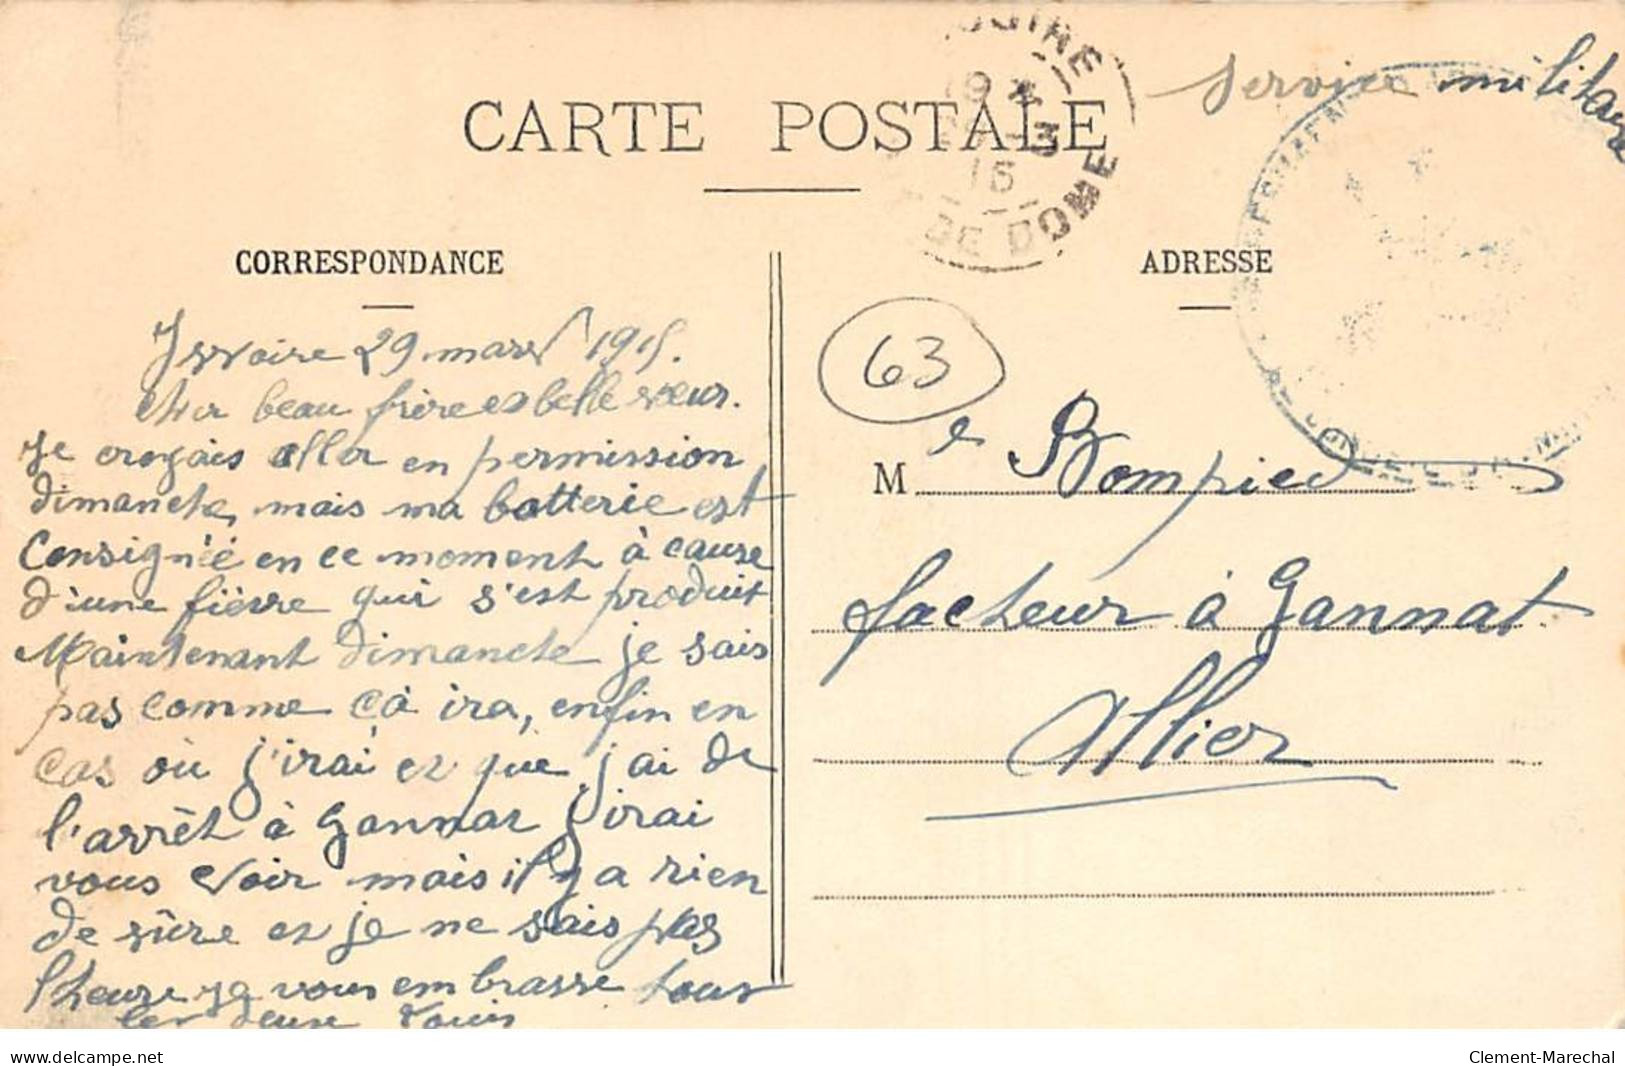 service militaire
CARTE POSTALE
DE DOME
CORRESPONDANCE
ADRESSE
63
Issoire 29 mars 1915.
Cher beau frère et belle sœur.
Je croyais aller en permission
dimanche, mais ma batterie est
Consignée en ce moment à cause
d'une fièvre qui s'est produit
Maintenant dimanche je sais
pas comme çà ira, enfin en
cas où j'irai et que j'ai de
l'arrêt à Gannat j'irai
vous voir mais il y a rien
de sûre et je ne sais pas
l'heure je vous embrasse tous
les deux Louis
M Bompied
facteur à Gannat
Allier
delcampe.net
Clement-Marechal